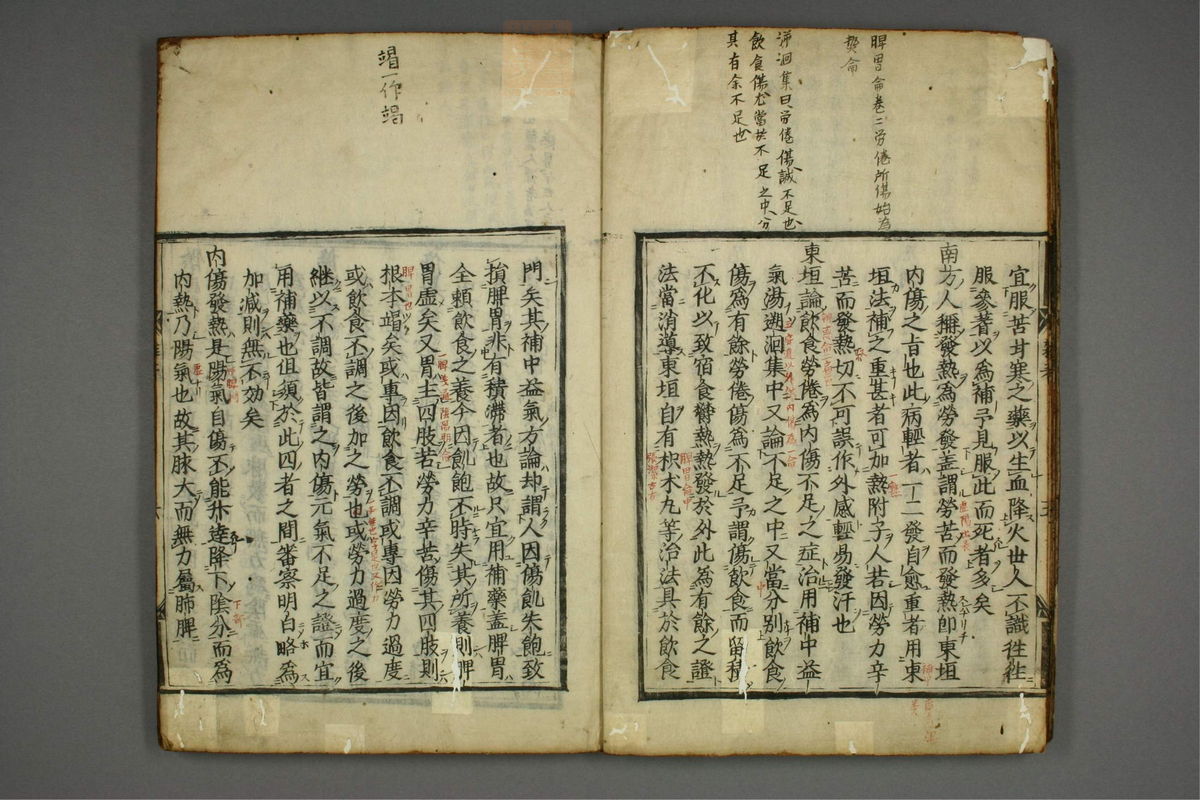 脾胃侖卷二労倦所傷始為
熱侖
泝洄集曰労倦傷誠不足也
飲食傷尤當於不足之中分
其有余不足也
宜服苦甘寒之藥以生血降火世人不識往往
服參耆以為補予見服此而死者多矣
南方人稱發熱為勞發盖謂勞苦而發熱即東垣
内傷之旨也此病輕者一二發自愈重者用東
垣法補之重甚者可加熱附子人若因勞力辛
苦而發熱切不可誤作外感輕易發汗也
東垣論飲食勞倦為内傷不足之症治用補中益
氣湯遡洄集中又論不足之中又當分別飲食
傷為有餘勞倦傷為不足予謂傷飲食而留積
不化以致宿食鬱熱熱發於外此為有餘之證
法當消導東垣自有枳木丸等治法具於飲食
竭一作竭
門矣其補中益氣方論却謂人因傷飢失飽致
損脾胃非有積滯者也故只宜用補藥盖脾胃
全賴飲食之養今因飢飽不時失其所養則脾
胃虚矣又胃主四肢若勞力辛苦傷其四肢則
根本竭矣或專因飲食不調或專因勞力過度
或飲食不調之後加之勞也或勞力過度之後
継以不調故皆謂之内傷元氣不足之證而宜
用補藥也但須於此四者之間審察明白略為
加減則無不効矣
内傷發熱是陽氣自傷不能升達降下陰分而為
内熱乃陽氣也故其脉大而無力屬肺脾